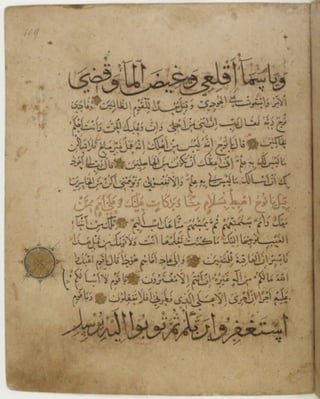 ويا سماء أقلعي وغيض الماء وقضي
الأمر واستوت على الجودي وقيل بعدا للقوم الظالمين ونادى
نوح ربه فقال رب إن ابني من أهلي وإن وعدك الحق وأنت أحكم
الحاكمين قال يا نوح إنه ليس من أهلك إنه عمل غير صالح فلا تسألن
ما ليس لك به علم إني أعظك أن تكون من الجاهلين قال رب إني أعوذ
بك أن أسألك ما ليس لي به علم وإلا تغفر لي وترحمني أكن من الخاسرين
قيل يا نوح اهبط بسلام منا وبركات عليك وعلى أمم ممن
معك وأمم سنمتعهم ثم يمسهم منا عذاب أليم تلك من أنباء
الغيب نوحيها إليك ما كنت تعلمها أنت ولا قومك من قبل هذا
فاصبر إن العاقبة للمتقين وإلى عاد أخاهم هودا قال يا قوم اعبدوا
الله ما لكم من إله غيره إن أنتم إلا مفترون يا قوم لا أسألكم
عليه أجرا إن أجري إلا على الذي فطرني أفلا تعقلون ويا قوم
استغفروا ربكم ثم توبوا إليه يرسل